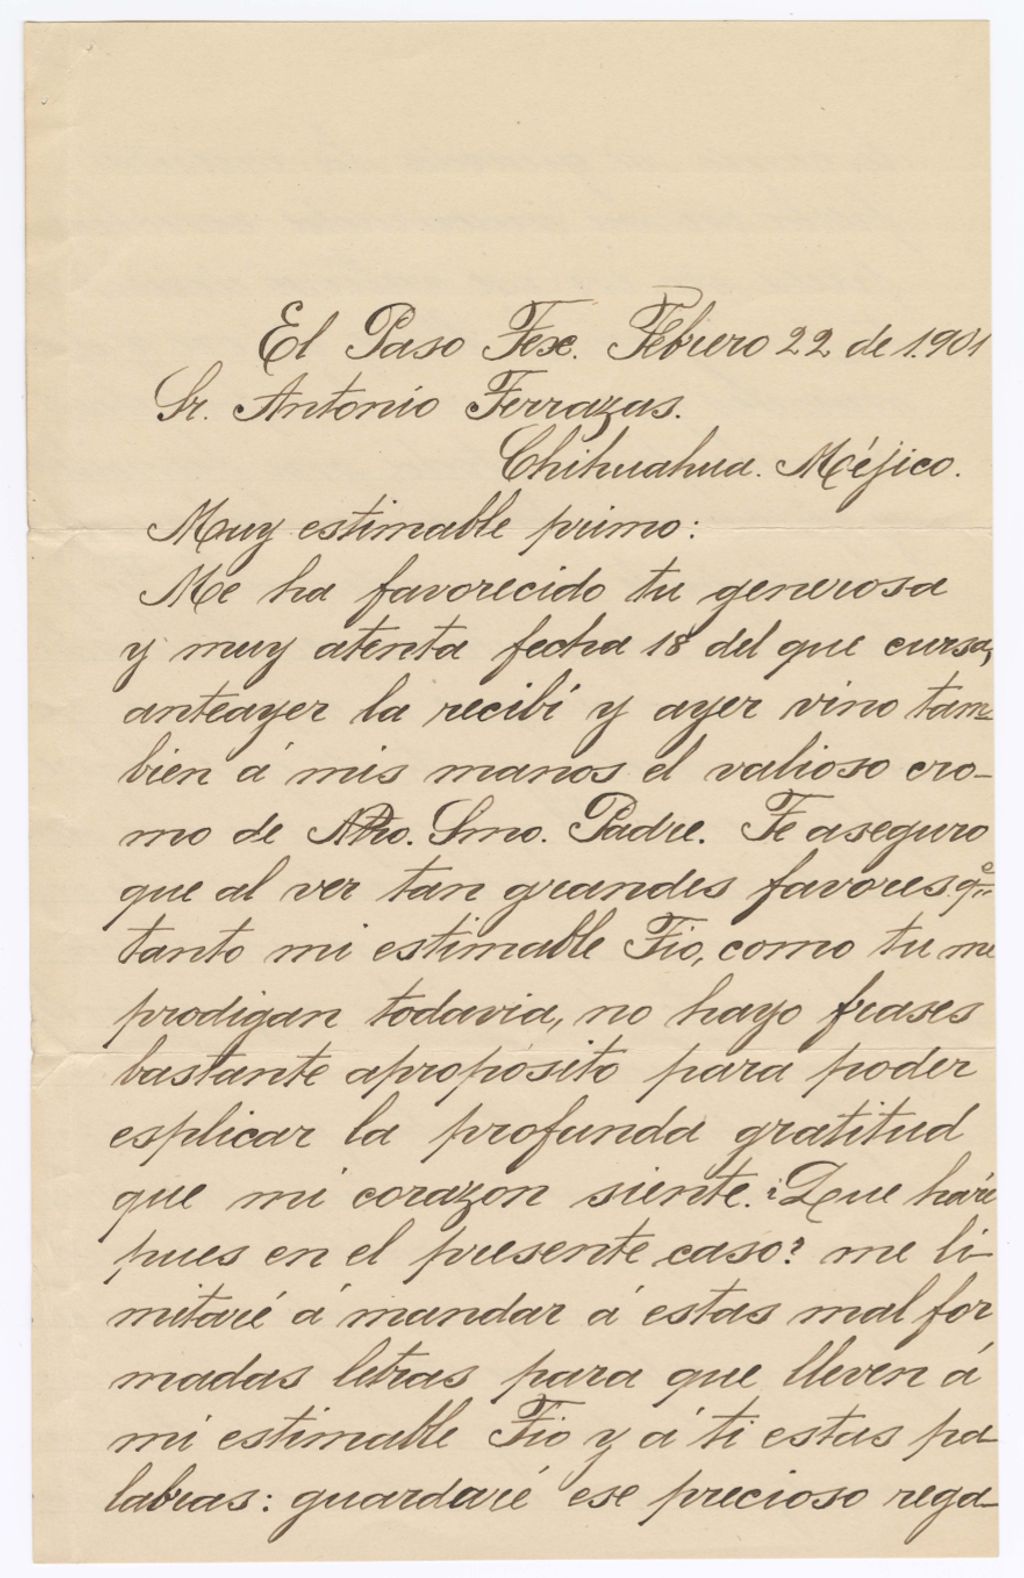 El Paso Tex. Febrero 22 de 1.901
Sr. Antonio Terrazas.
Chihuahua. Méjico.
Muy estimable primo:
Me ha favorecido tu generosa
y muy atenta fecha 18 del que cursa,
anteayer la recibí y ayer vino tam-
bien á mis manos el valioso cro-
mo de Ntro. Smo. Padre. Te aseguro
que al ver tan grandes favores qe
tanto mi estimable Tio, como tu me
prodigan todavia, no hayo frases
bastante apropósito para poder
esplicar la profunda gratitud
que mi corazon siente. ¿Que haré
pues en el presente caso? me li-
mitaré á mandar á estas mal for
madas letras para que lleven á
mi estimable Tio y á ti estas pa-
labras: guardaré ese precioso rega-